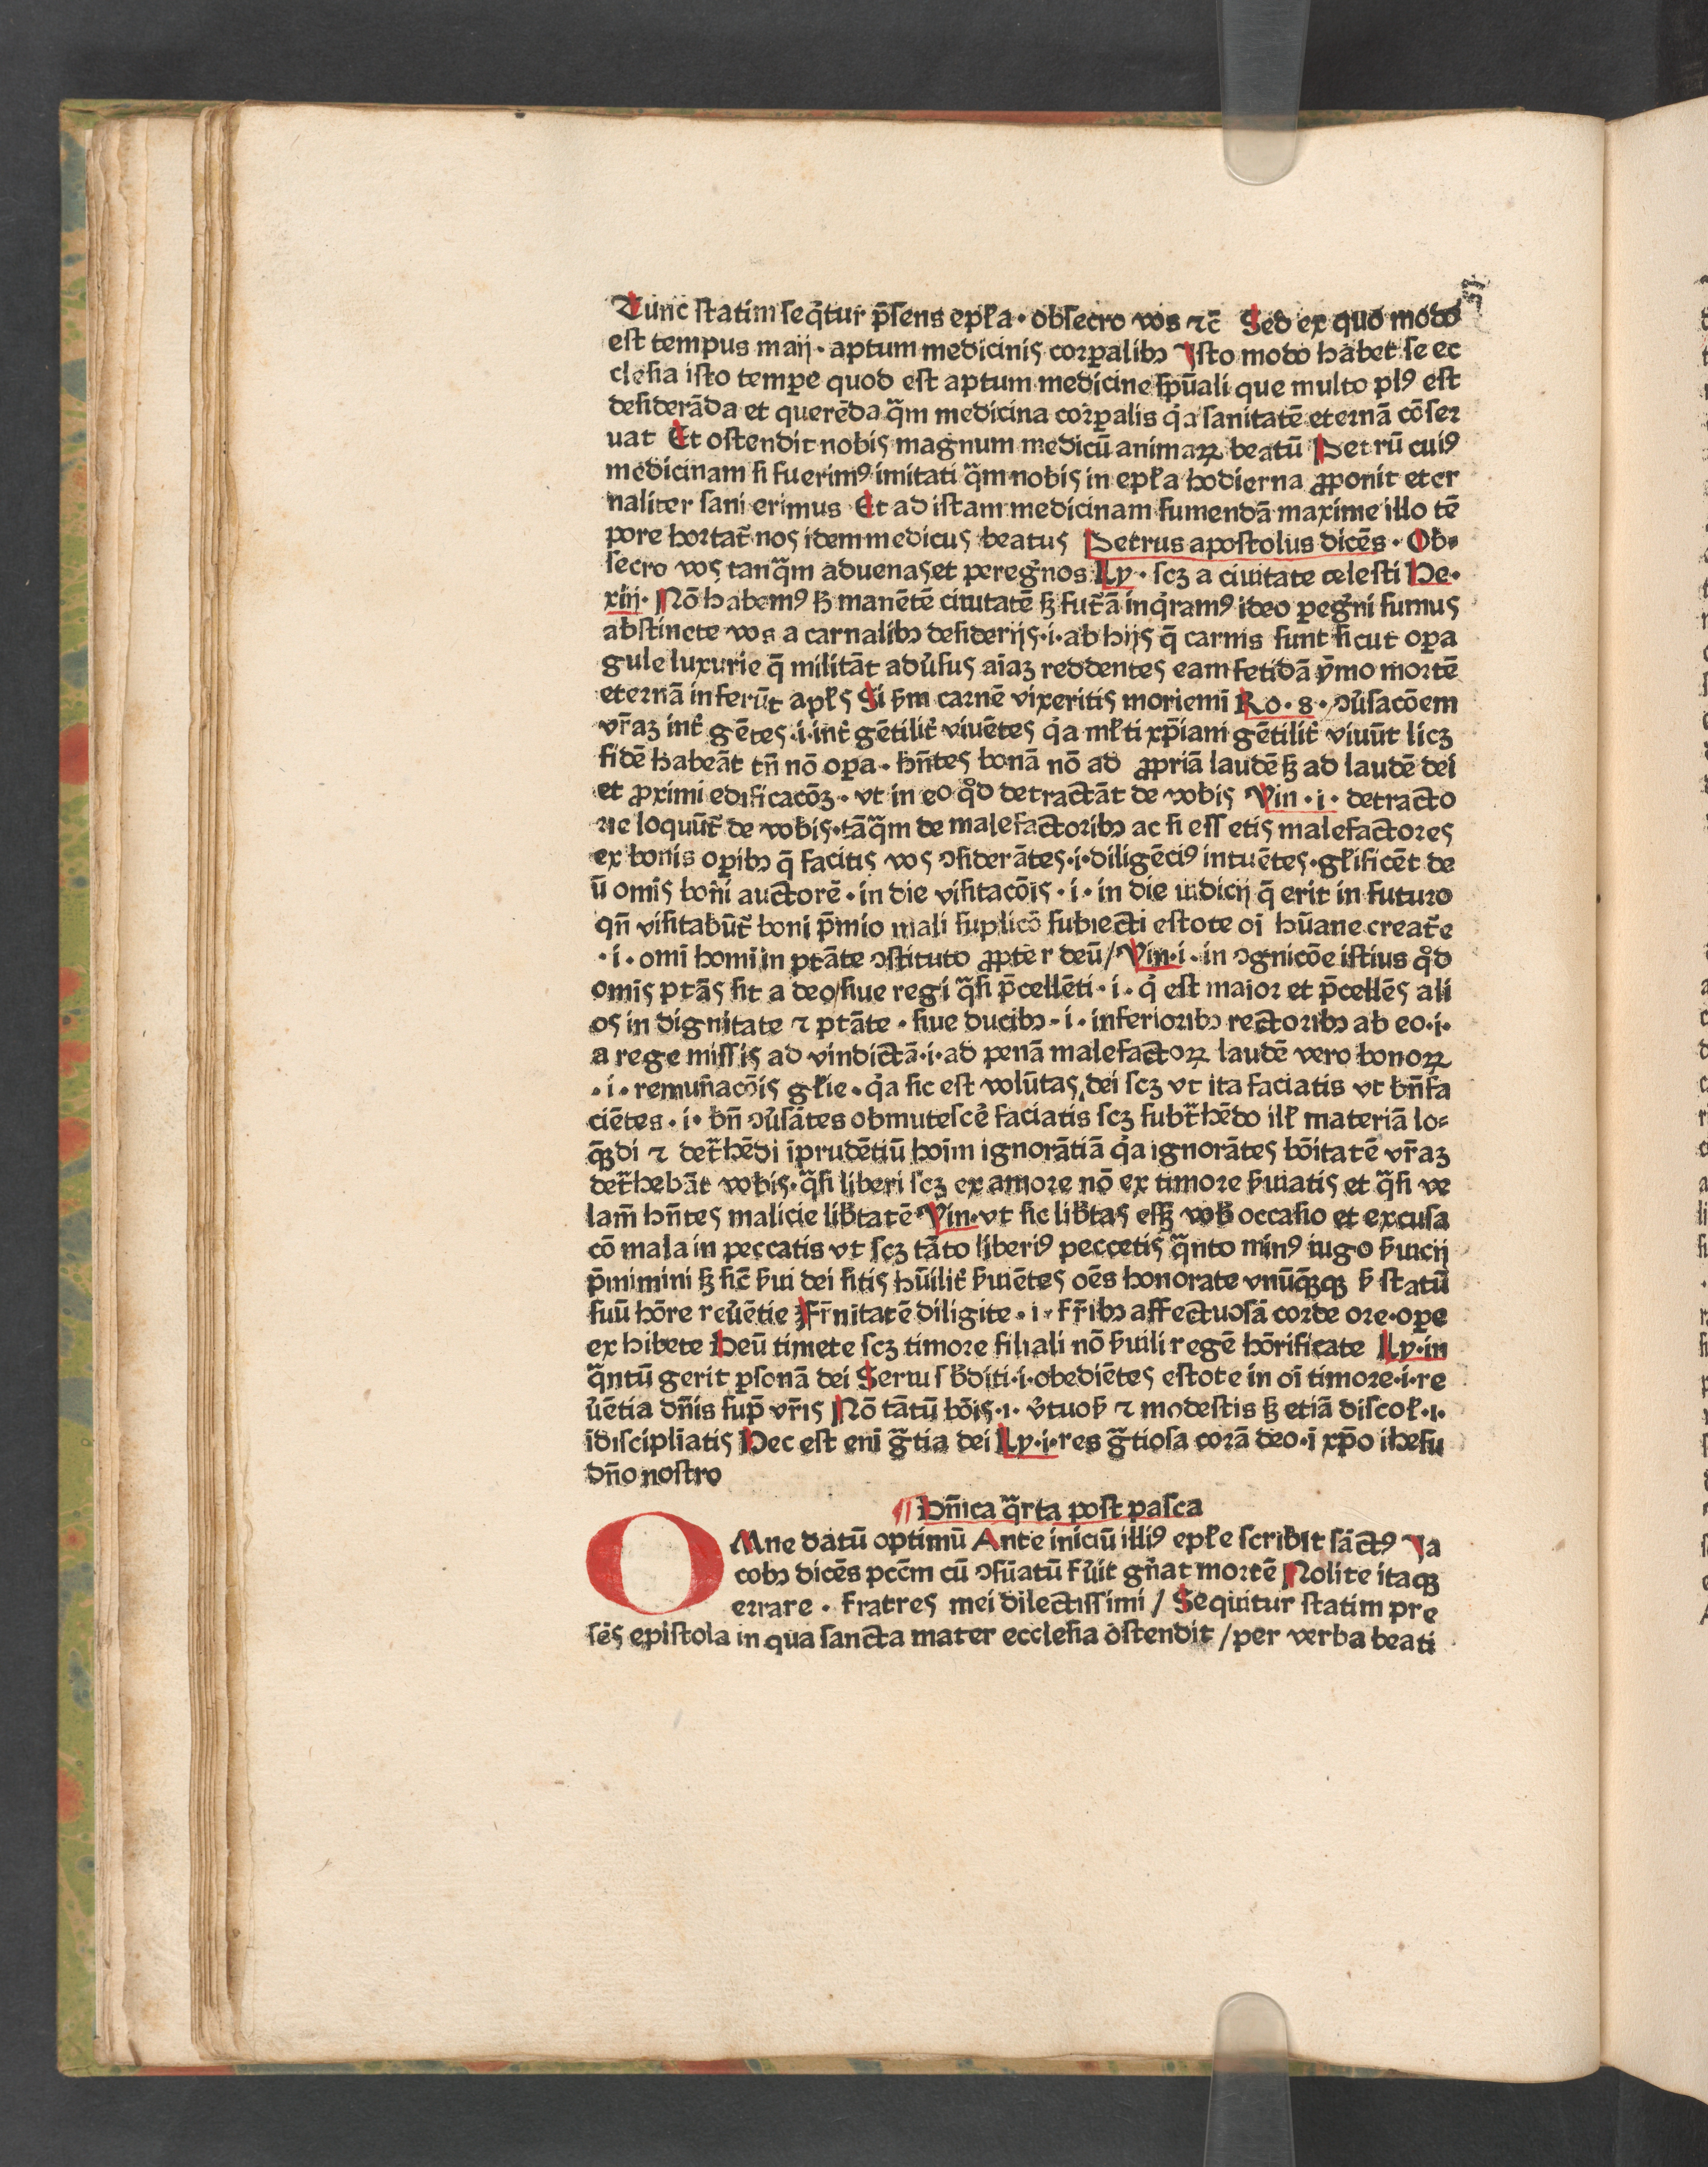 Tunc ſtatim ſeqͥtur p̄ſens epl̵a · obſecro vos ⁊c̄ Sed ex quo modo
eſt tempus maij · aptum medicinis corꝑalibꝫ Iſto modo habet ſe ec
cleſia iſto tempe quod eſt aptum medicine ſpūali que multo plꝰ eſt
deſiderāda et querēda qᷓm medicina corꝑalis qͥa ſanitatē eternā cōſer
uat Et oſtendit nobis magnum medicū animaꝝ beatū Petrū cuiꝰ
medicinam ſi fuerimꝰ imitati qᷓm nobis in epl̵a hodierna ꝓponit eter
naliter ſani erimus Et ad iſtam medicinam ſumendā maxime illo tē
pore hortat̄ nos idem medicus beatus Petrus apoſtolus dicēs · Ob⸗
ſecro vos tanqᷓm aduenas et peregͥnos Ly · ſcꝫ a ciuitate celeſti He·
xiij · Nō habemꝰ hͨ manētē ciuitatē ſꝫ fut̄ā inqͥramꝰ ideo ꝑegͥni ſumus
abſtinete vos a carnalibꝫ deſiderijs · i · ab hijs q̄ carnis ſunt ſicut oꝑa
gule luxurie q̄ militāt adūſus aīaꝫ reddentes eam fetidā ymo mortē
eternā inferūt apl̵s Si ẜm carnē vixeritis moriemī Ro · 8 · ꝯūſacōem
vr̄aꝫ int̄ gētes · i · int̄ gētilit̄ viuētes qͥa ml̵ti xp̄iani gētilit̄ viuūt licꝫ
fidē habeāt tn̄ nō oꝑa · hn̄tes bonā nō ad ꝓpriā laudē ſꝫ ad laudē dei
et ꝓximi edificacōꝫ · vt in eo qͦd detractāt de vobis Vin · i · detracto
rie loquūt̄ de vobis · tāqᷓm de malefactoribꝫ ac ſi eſſetis malefactores
ex bonis oꝑibꝫ q̄ facitis vos ꝯſiderātes · i · diligēciꝰ intuētes · gl̵ificēt de
ū omīs boni auctorē · in die viſitacōis · i · in die iudicij q̄ erit in futuro
qn̄ viſitabūt̄ boni p̄mio mali ſuplicō ſubiecti eſtote oī hūane creat̄e
· i · omī homī in ptāte ꝯſtituto ꝓpter deū / Vin · i · in ꝯgnicōe iſtius qͦd
omīs ptās ſit a deo / ſiue regi qᷓſi p̄cellēti · i · qͥ eſt maior et p̄cellēs ali
os in dignitate ⁊ ptāte · ſiue ducibꝫ · i · inferioribꝫ rectoribꝫ ab eo · i ·
a rege miſſis ad vindictā · i · ad penā malefactoꝝ laudē vero bonoꝝ
· i · remun̄acōis gl̵ie · qͥa ſic eſt volūtas dei ſcꝫ vt ita faciatis vt bn̄fa
ciētes · i · bn̄ ꝯūſātes obmuteſce̍ faciatis ſcꝫ ſubtᷓhēdo ill̵ materiā lo⸗
qͣꝫdi ⁊ detᷓhēdi īprudētiū hoīm ignorātiā qͥa ignorātes bōitatē vr̄aꝫ
detᷓhebāt vobis · qᷓſi liberi ſcꝫ ex amore nō ex timore ẜuiatis et qᷓſi ve
lam̄ hn̄tes malicie lib̄tatē Vin · vt ſic lib̄tas eſſꝫ vob̄ occaſio et excuſa
cō mala in peccatis vt ſcꝫ tāto liberiꝰ peccetis qᷓnto minꝰ iugo ẜuicij
p̄mimini ſꝫ ſic̄ ẜui dei ſitis hūilit̄ ẜuiētes oēs honorate vnūqͣꝫqꝫ ẜ ſtatū
ſuū hōre reūētie fr̄nitatē diligite · i · fr̄ibꝫ affectuoſā corde ore · oꝑe
exhibete Deū timete ſcꝫ timore filiali nō ẜuili regē hōrificate Ly · in
qᷓntū gerit ꝑſonā dei Serui ſb̄diti · i · obediētes eſtote in oī timore · i · re
ūētia dn̄is ſup̄ vr̄is Nō tātū bōis · i · v̄tuoẜ ⁊ modeſtis ſꝫ etiā diſcol̵ · i ·
īdiſcipliatis Hec eſt enī gᷓtia dei Ly · i · res gᷓtioſa corā deo · ī xp̄o iheſu
dn̄o noſtro
¶ Dn̄ica qᷓrta poſt paſca
OMne datū optimū Ante iniciū illiꝰ epl̵e ſcribit ſāctꝰ Ia
cobꝫ dicēs pccm̄ cū ꝯſūatū fūit gn̄at mortē Nolite itaqꝫ
errare · fratres mei dilectiſſimi / Sequitur ſtatim pre
ſēs epiſtola in qua ſancta mater eccleſia oſtendit / per verba beati